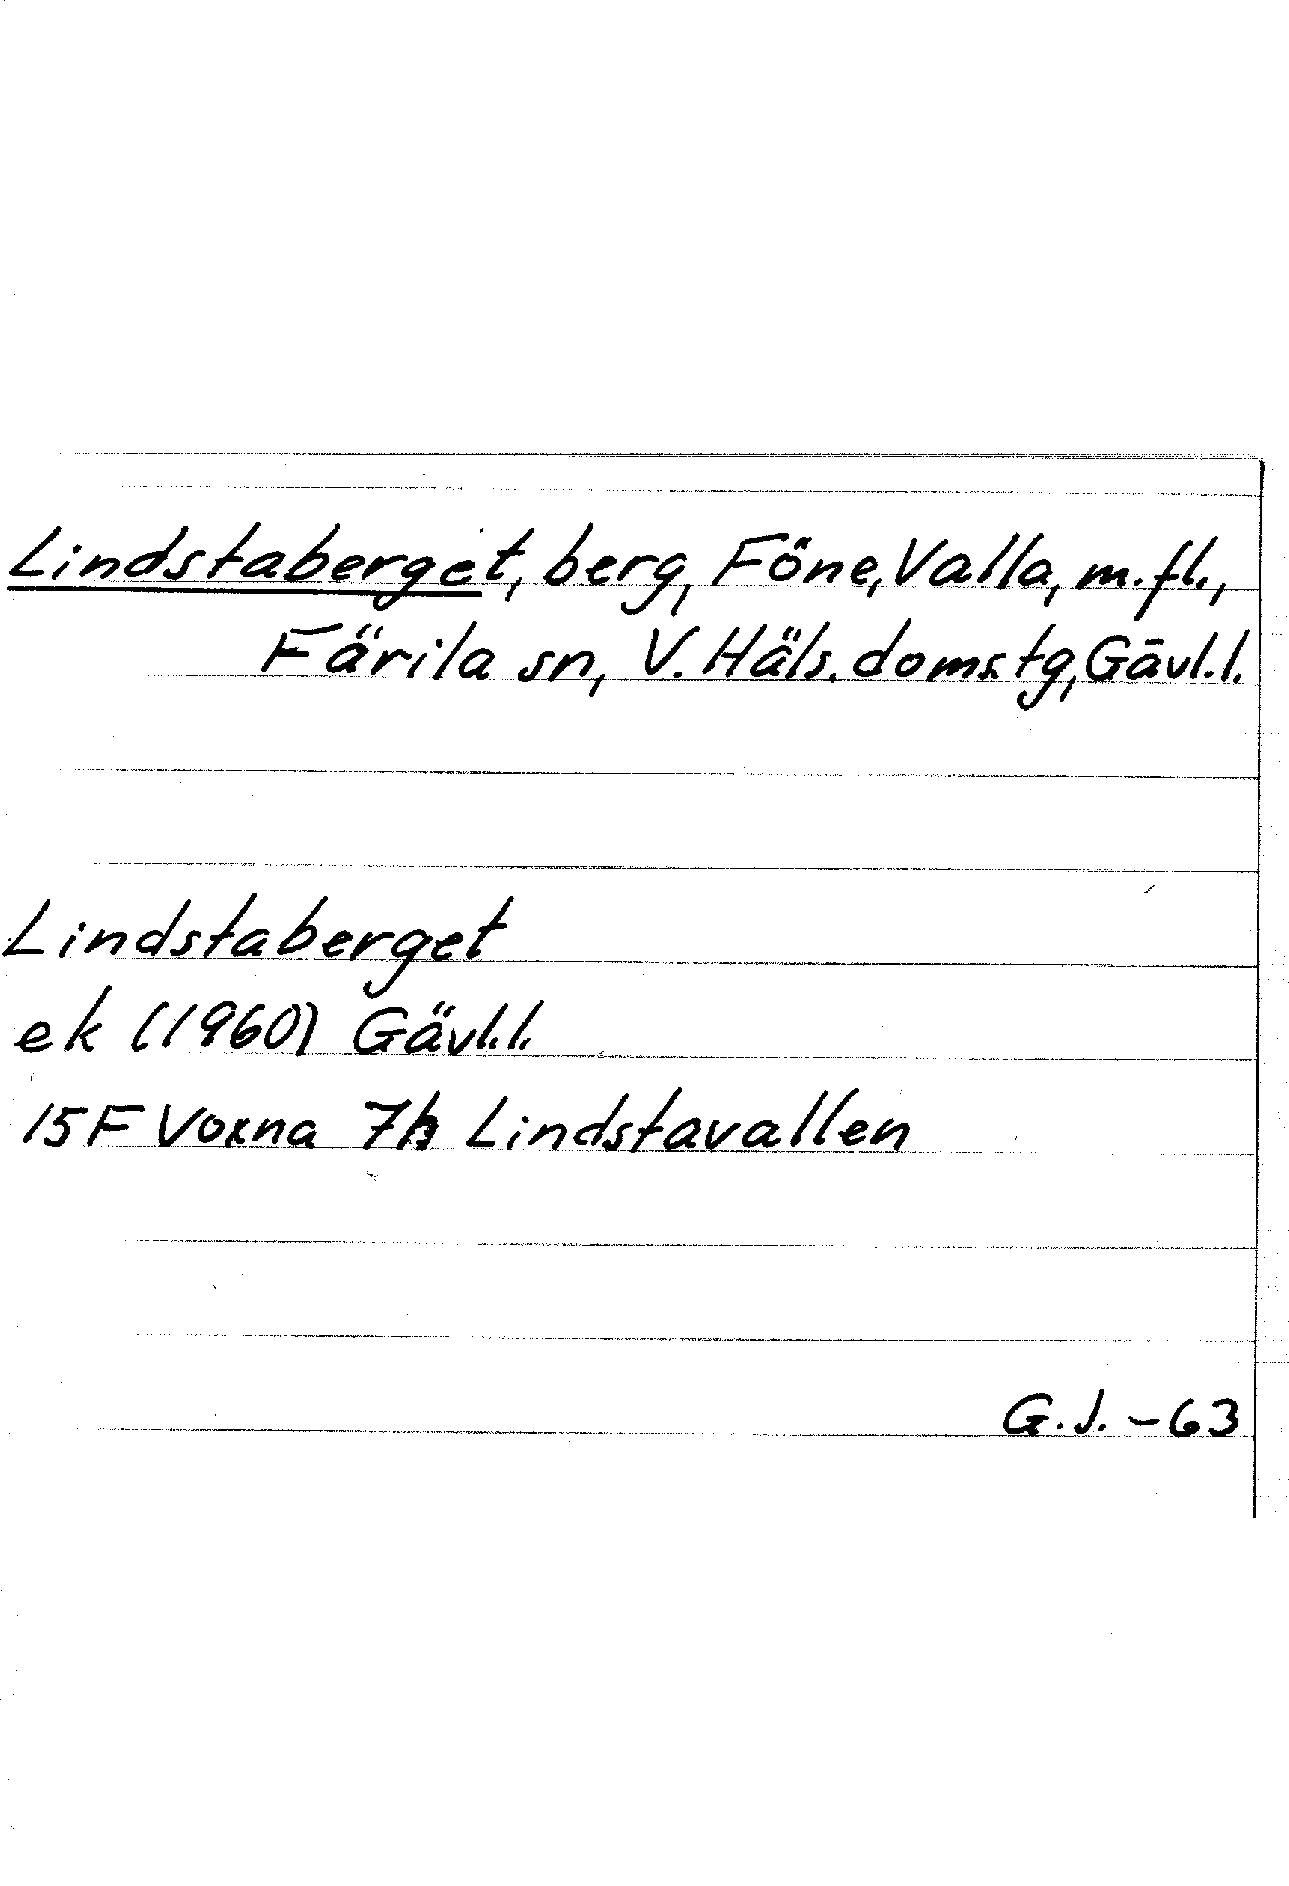 Lindstaberget, berg, Föne, Valla, m.fl.,
Färila sn, V. Häls. domstg, Gävl.l.
Lindstaberget
ek (1960) Gävl.l.
15F Voxna 7h Lindstavallen
G.J. -63